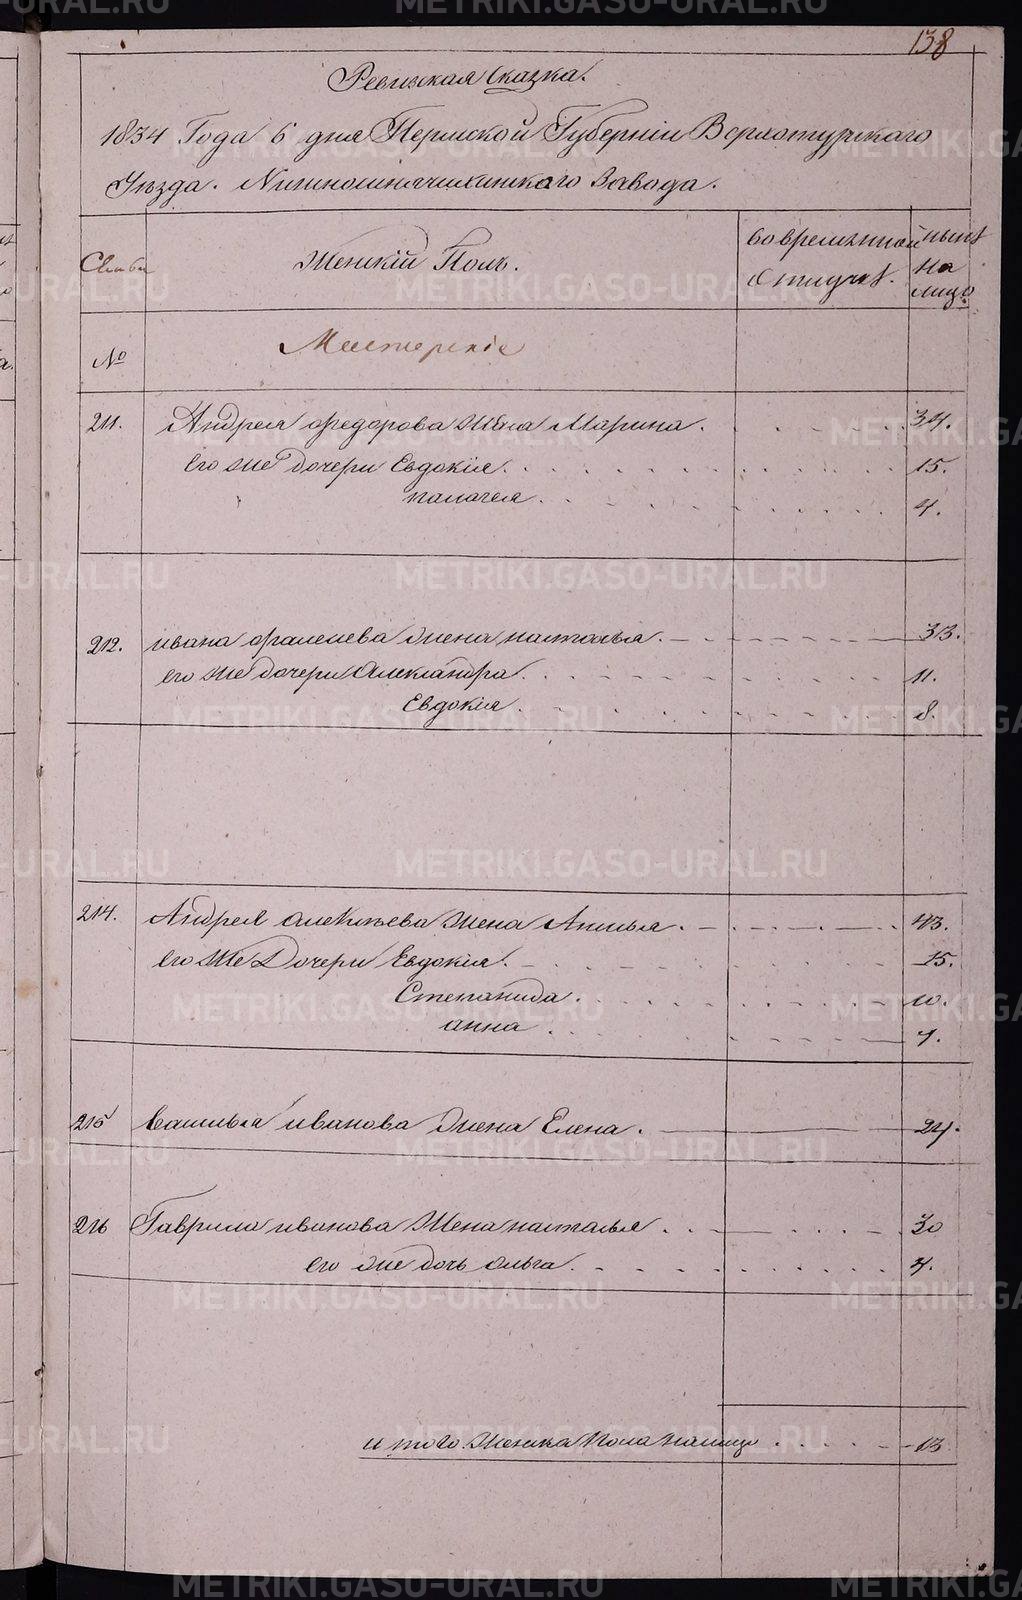 138
Ревизская Сказка.
1834 Года 6 дня Пермской Губерніи Верхотурскаго
Уѣзда. Нижносинячихинскаго Завода.
Семьи
Женскій Полъ.
Во временной
Отлучкѣ.
ныне
на
лицо
№
Мастерскіе
211. Андрея федорова Жена Марина. 34.
Его же дочери Евдокія. 15.
палагея. 4.
212. ивана фалелева жена настасья. 33.
его же дочери Александра. 11.
Евдокія. 8.
214. Андрея алексѣева Жена Анисья. 43.
Его же Дочери Евдокія. 15.
Степанида. 10.
анна 7.
215 Василья иванова жена Елена. 24.
216 Гаврила иванова Жена насталья 30
его же дочь ольга. 4.
итого женска пола налицо 13
METRIKI.GASO-URAL.RU